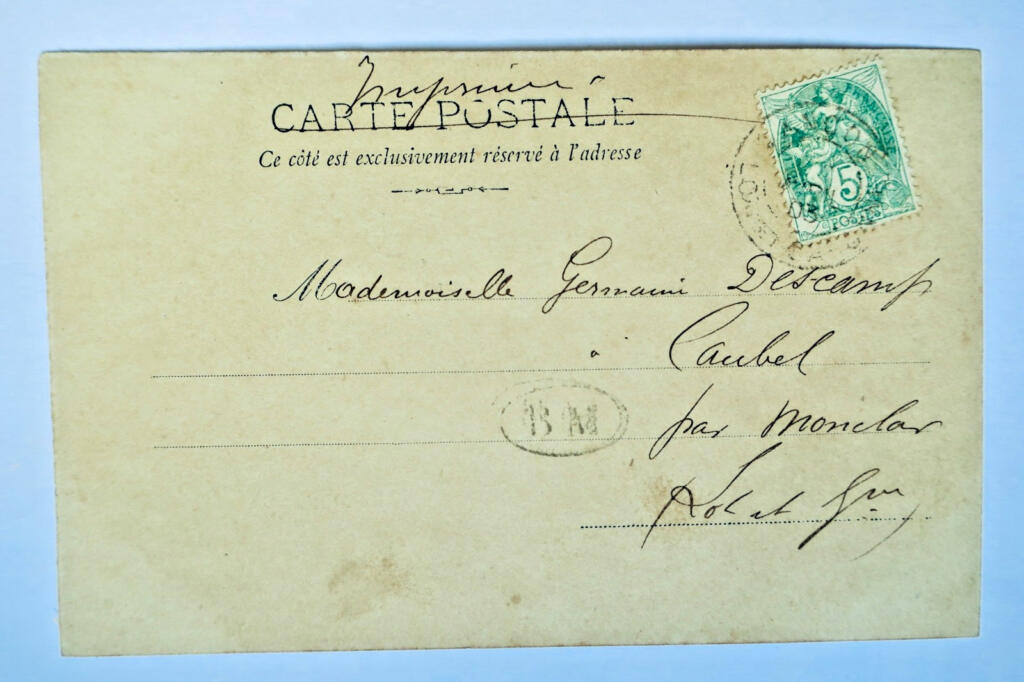 Imprimé
CARTE POSTALE
Ce côté est exclusivement réservé à l'adresse
5
POSTES
Mademoiselle Germaine Descamps
à Caubel
par Monclar
Lot et Gne